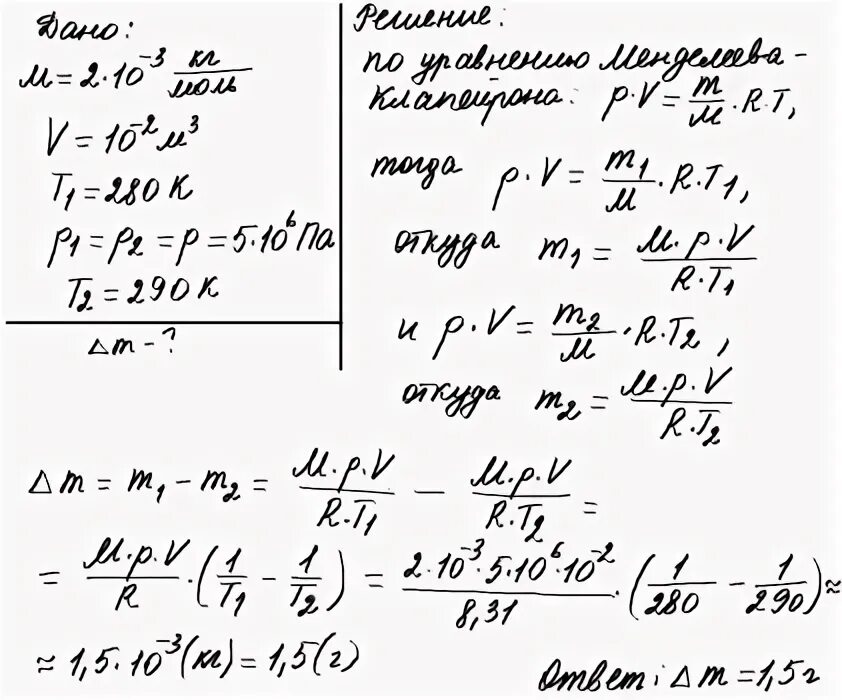 Дано:
M = 2·10⁻³ кг/моль
V = 10⁻² м³
T₁ = 280 К
p₁ = p₂ = p = 5·10⁶ Па
T₂ = 290 К
Δm - ?
Решение:
по уравнению Менделеева-
Клапейрона: p·V = m/M · R·T,
тогда p·V = m₁/M · R·T₁,
откуда m₁ = M·p·V / R·T₁
и p·V = m₂/M · R·T₂,
откуда m₂ = M·p·V / R·T₂
Δm = m₁ - m₂ = M·p·V / R·T₁ - M·p·V / R·T₂ =
= M·p·V / R · (1/T₁ - 1/T₂) = 2·10⁻³·5·10⁶·10⁻² / 8,31 · (1/280 - 1/290) ≈
≈ 1,5·10⁻³ (кг) = 1,5 (г)
Ответ: Δm = 1,5 г